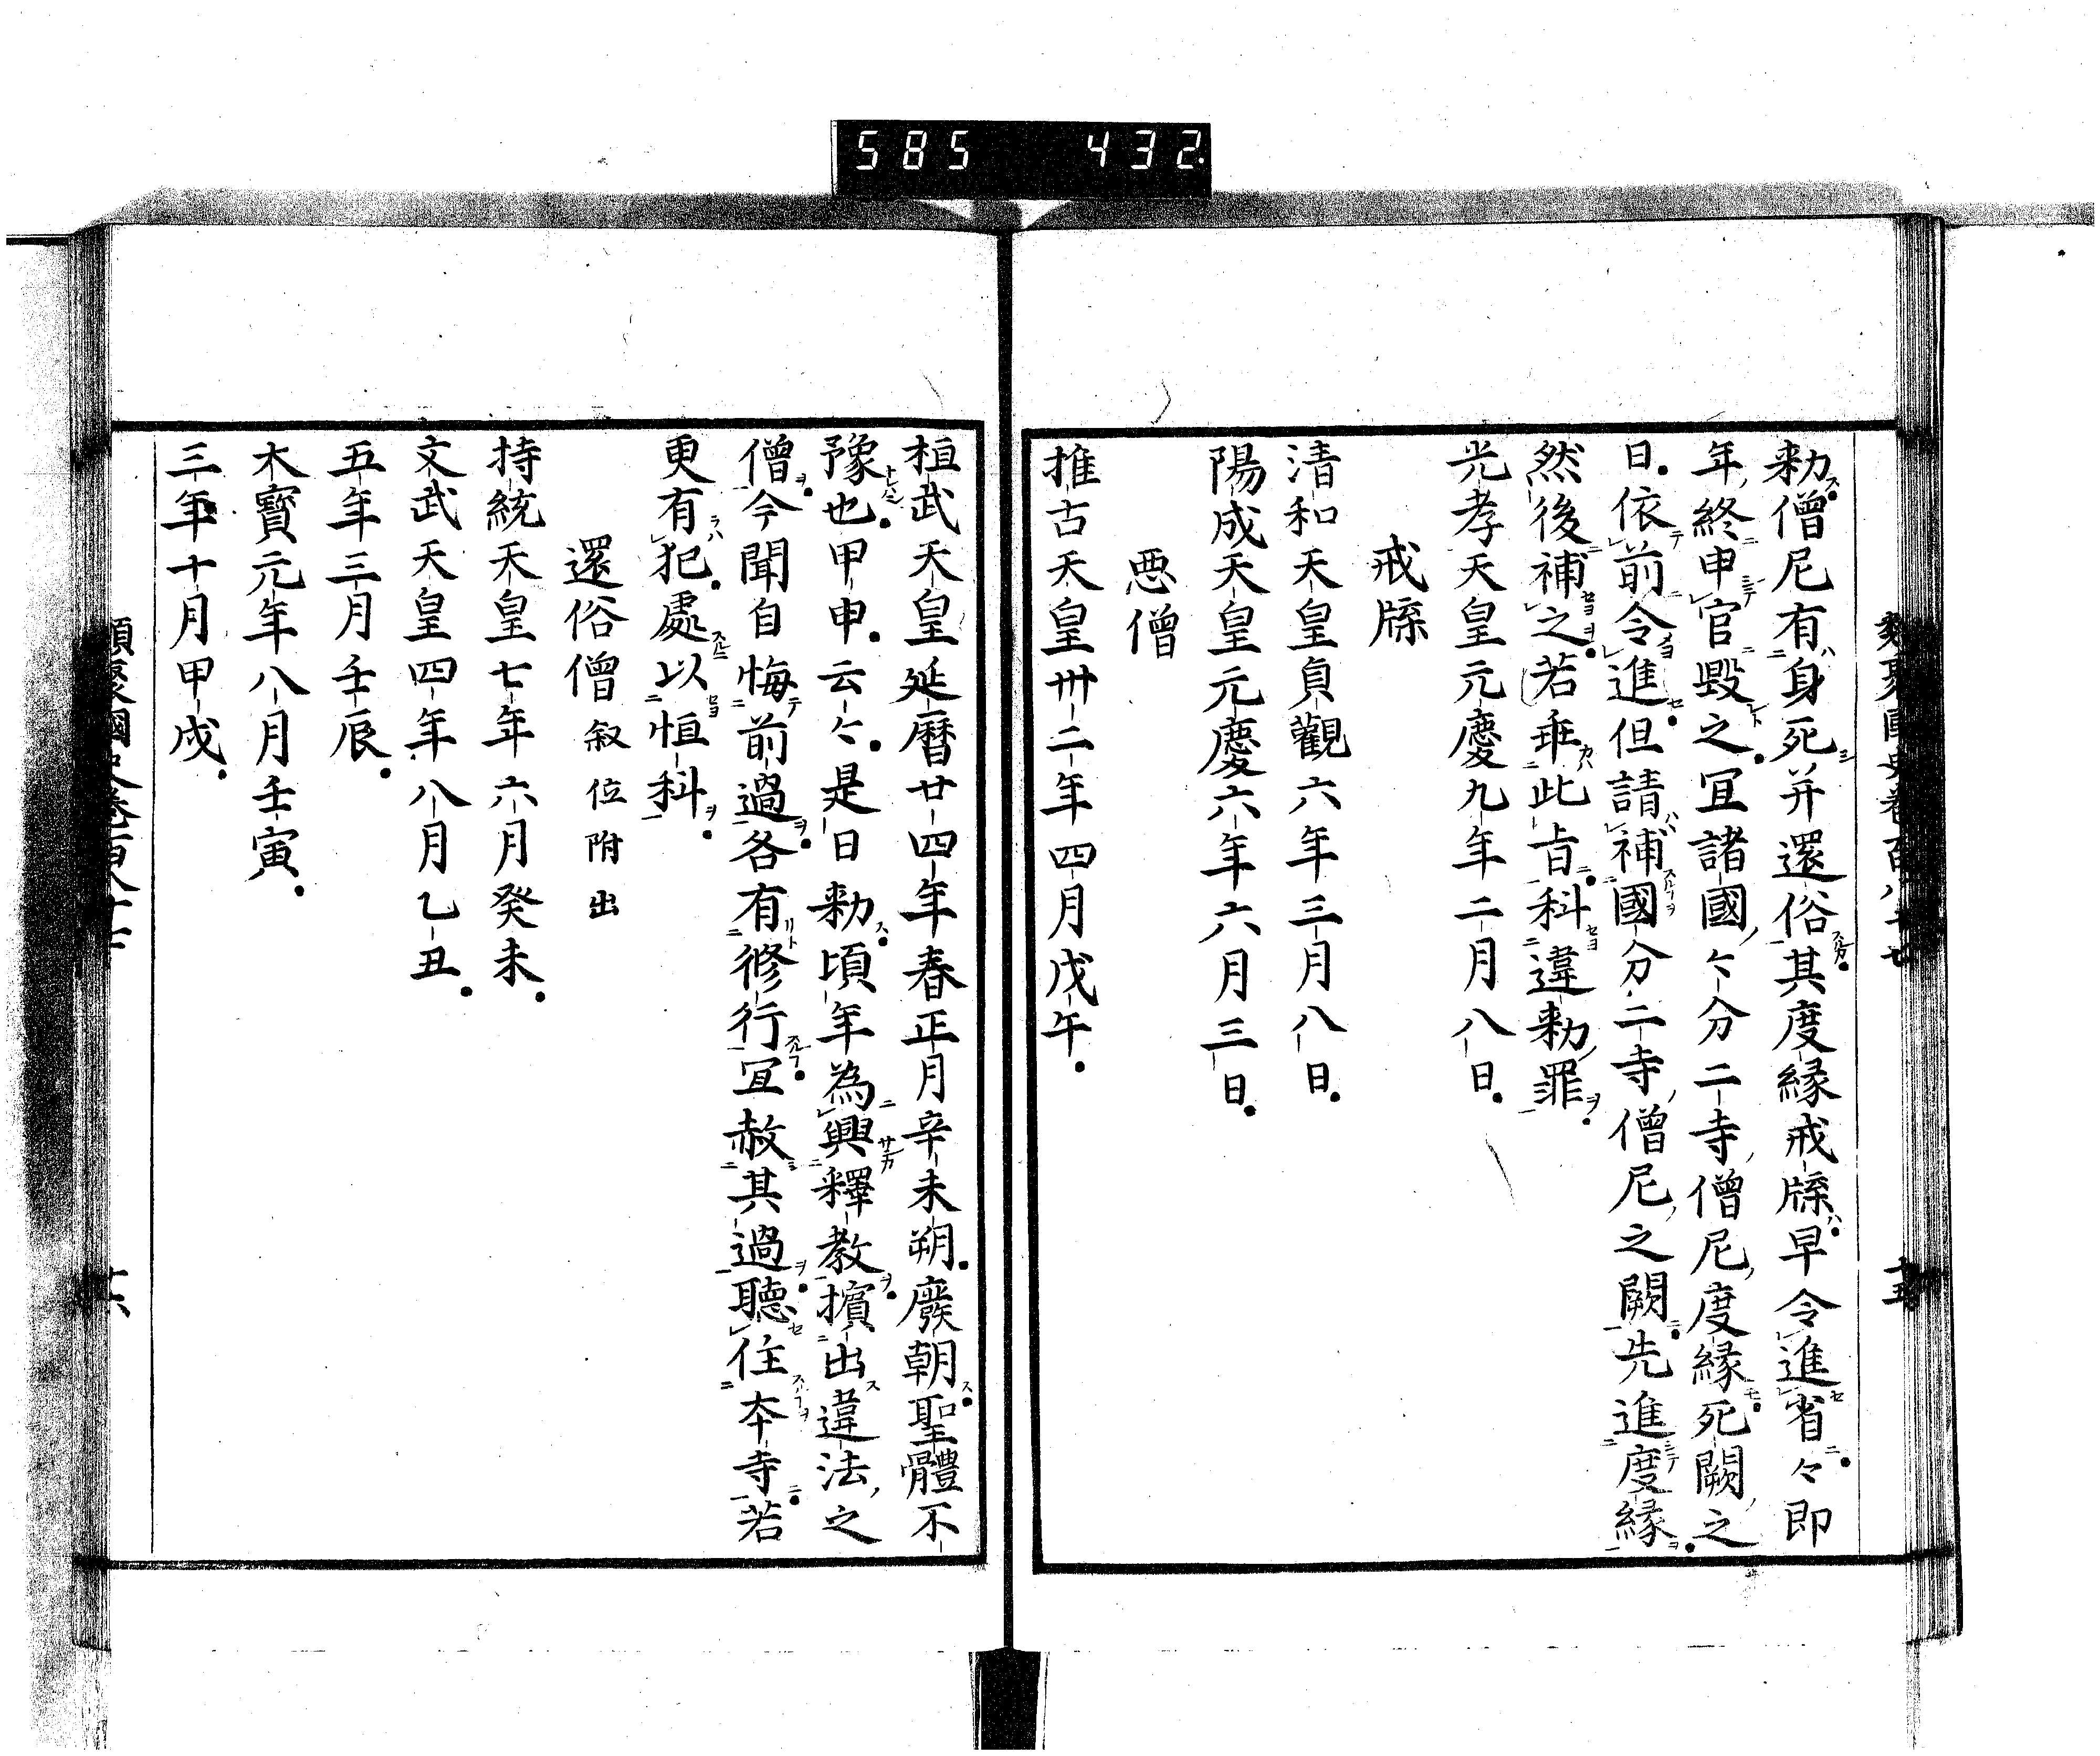 585 432
類聚國史卷百八十七 十五
勅僧尼有身死并還俗其度縁戒牒早令進省々即
年終申官毀之宜諸國々分二寺僧尼度縁死闕之
日依前令進但請補國分二寺僧尼之闕先進度縁
然後補之若乖此旨科違勅罪
光孝天皇元慶九年二月八日
戒牒
清和天皇貞觀六年三月八日
陽成天皇元慶六年六月三日
悪僧
推古天皇卅二年四月戊午
桓武天皇延暦廿四年春正月辛未朔廢朝聖體不
豫也甲申云々是日勅頃年為興釋教擯出違法之
僧今聞自悔前過各有修行宜赦其過聽住本寺若
更有犯處以恒科
還俗僧叙位附出
持統天皇七年六月癸未
文武天皇四年八月乙丑
五年三月壬辰
大寳元年八月壬寅
三年十月甲戌
類聚國史卷百八十七 十六